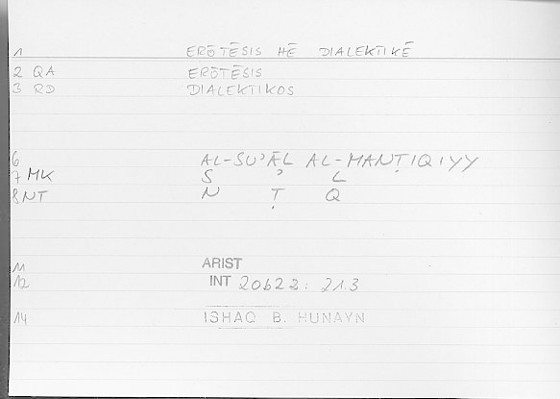 1 ERŌTĒSIS HĒ DIALEKTIKĒ
2 QA ERŌTĒSIS
3 RD DIALEKTIKOS
6 AL-SU’ĀL AL-MANṬIQIYY
7 MK S ’ L
8 NT N Ṭ Q
11 ARIST
12 INT 20b22: 21.3
14 ISHAQ B. HUNAYN